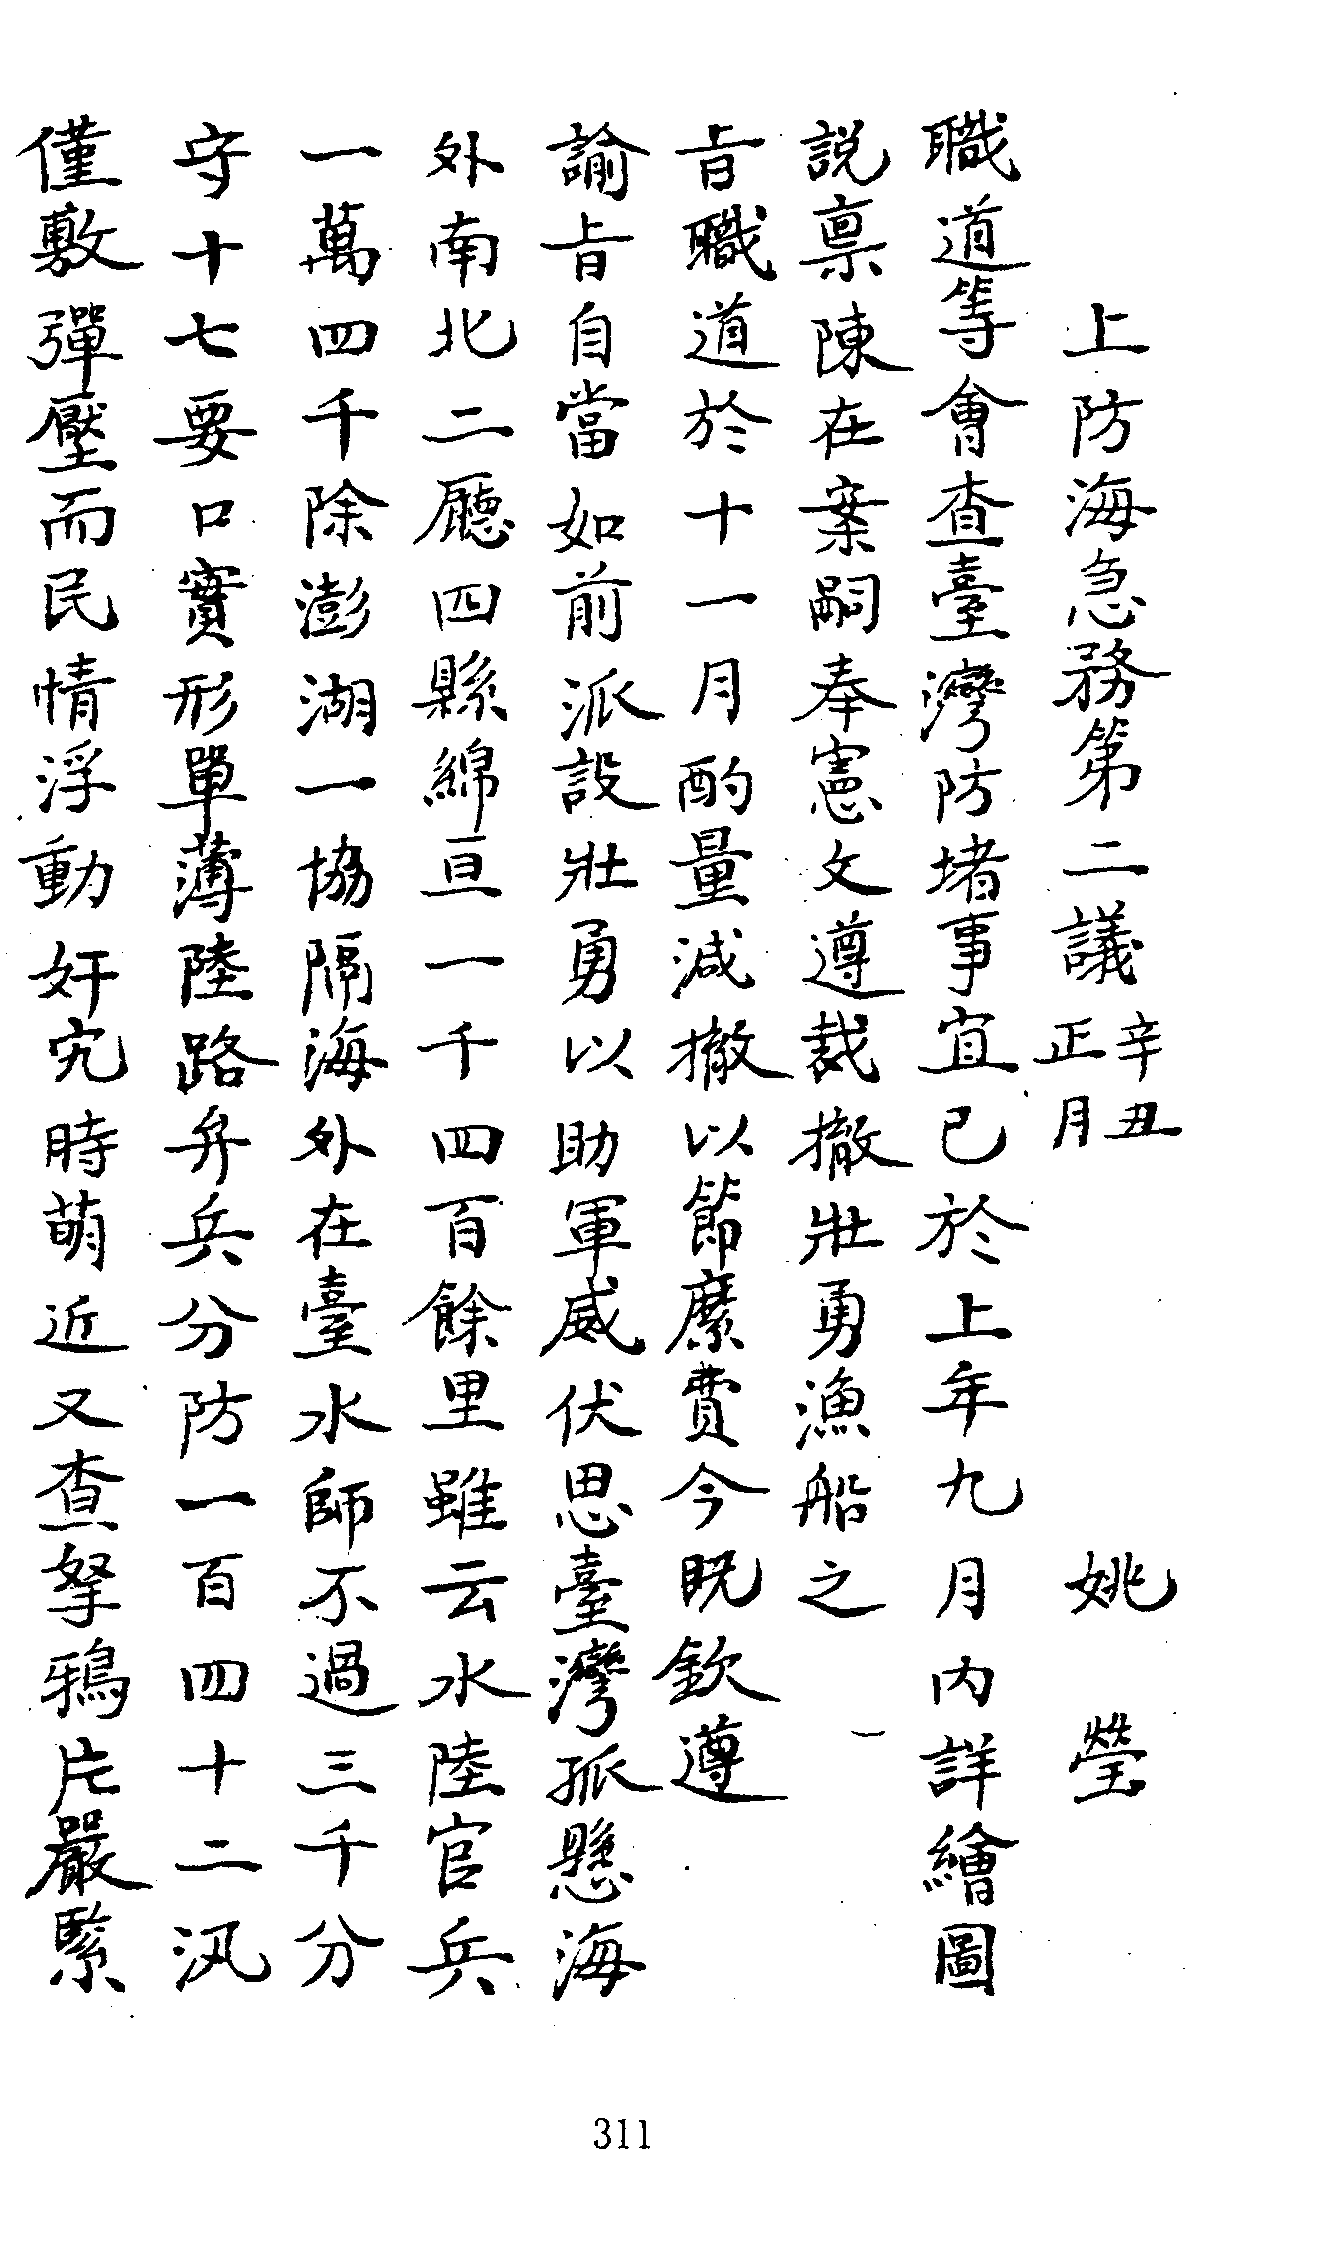 上防海急務第二議辛丑正月 姚瑩
職道等會查臺灣防堵事宜已於上年九月內詳繪圖
說稟陳在案嗣奉憲文遵裁撤壯勇漁船之
旨職道於十一月酌量減撤以節糜費今既欽遵
諭旨自當如前派設壯勇以助軍威伏思臺灣孤懸海
外南北二廳四縣綿亘一千四百餘里雖云水陸官兵
一萬四千除澎湖一協隔海外在臺水師不過三千分
守十七要口實形單薄陸路弁兵分防一百四十二汛
僅敷彈壓而民情浮動奸宄時萌近又查拏鴉片嚴緊
311